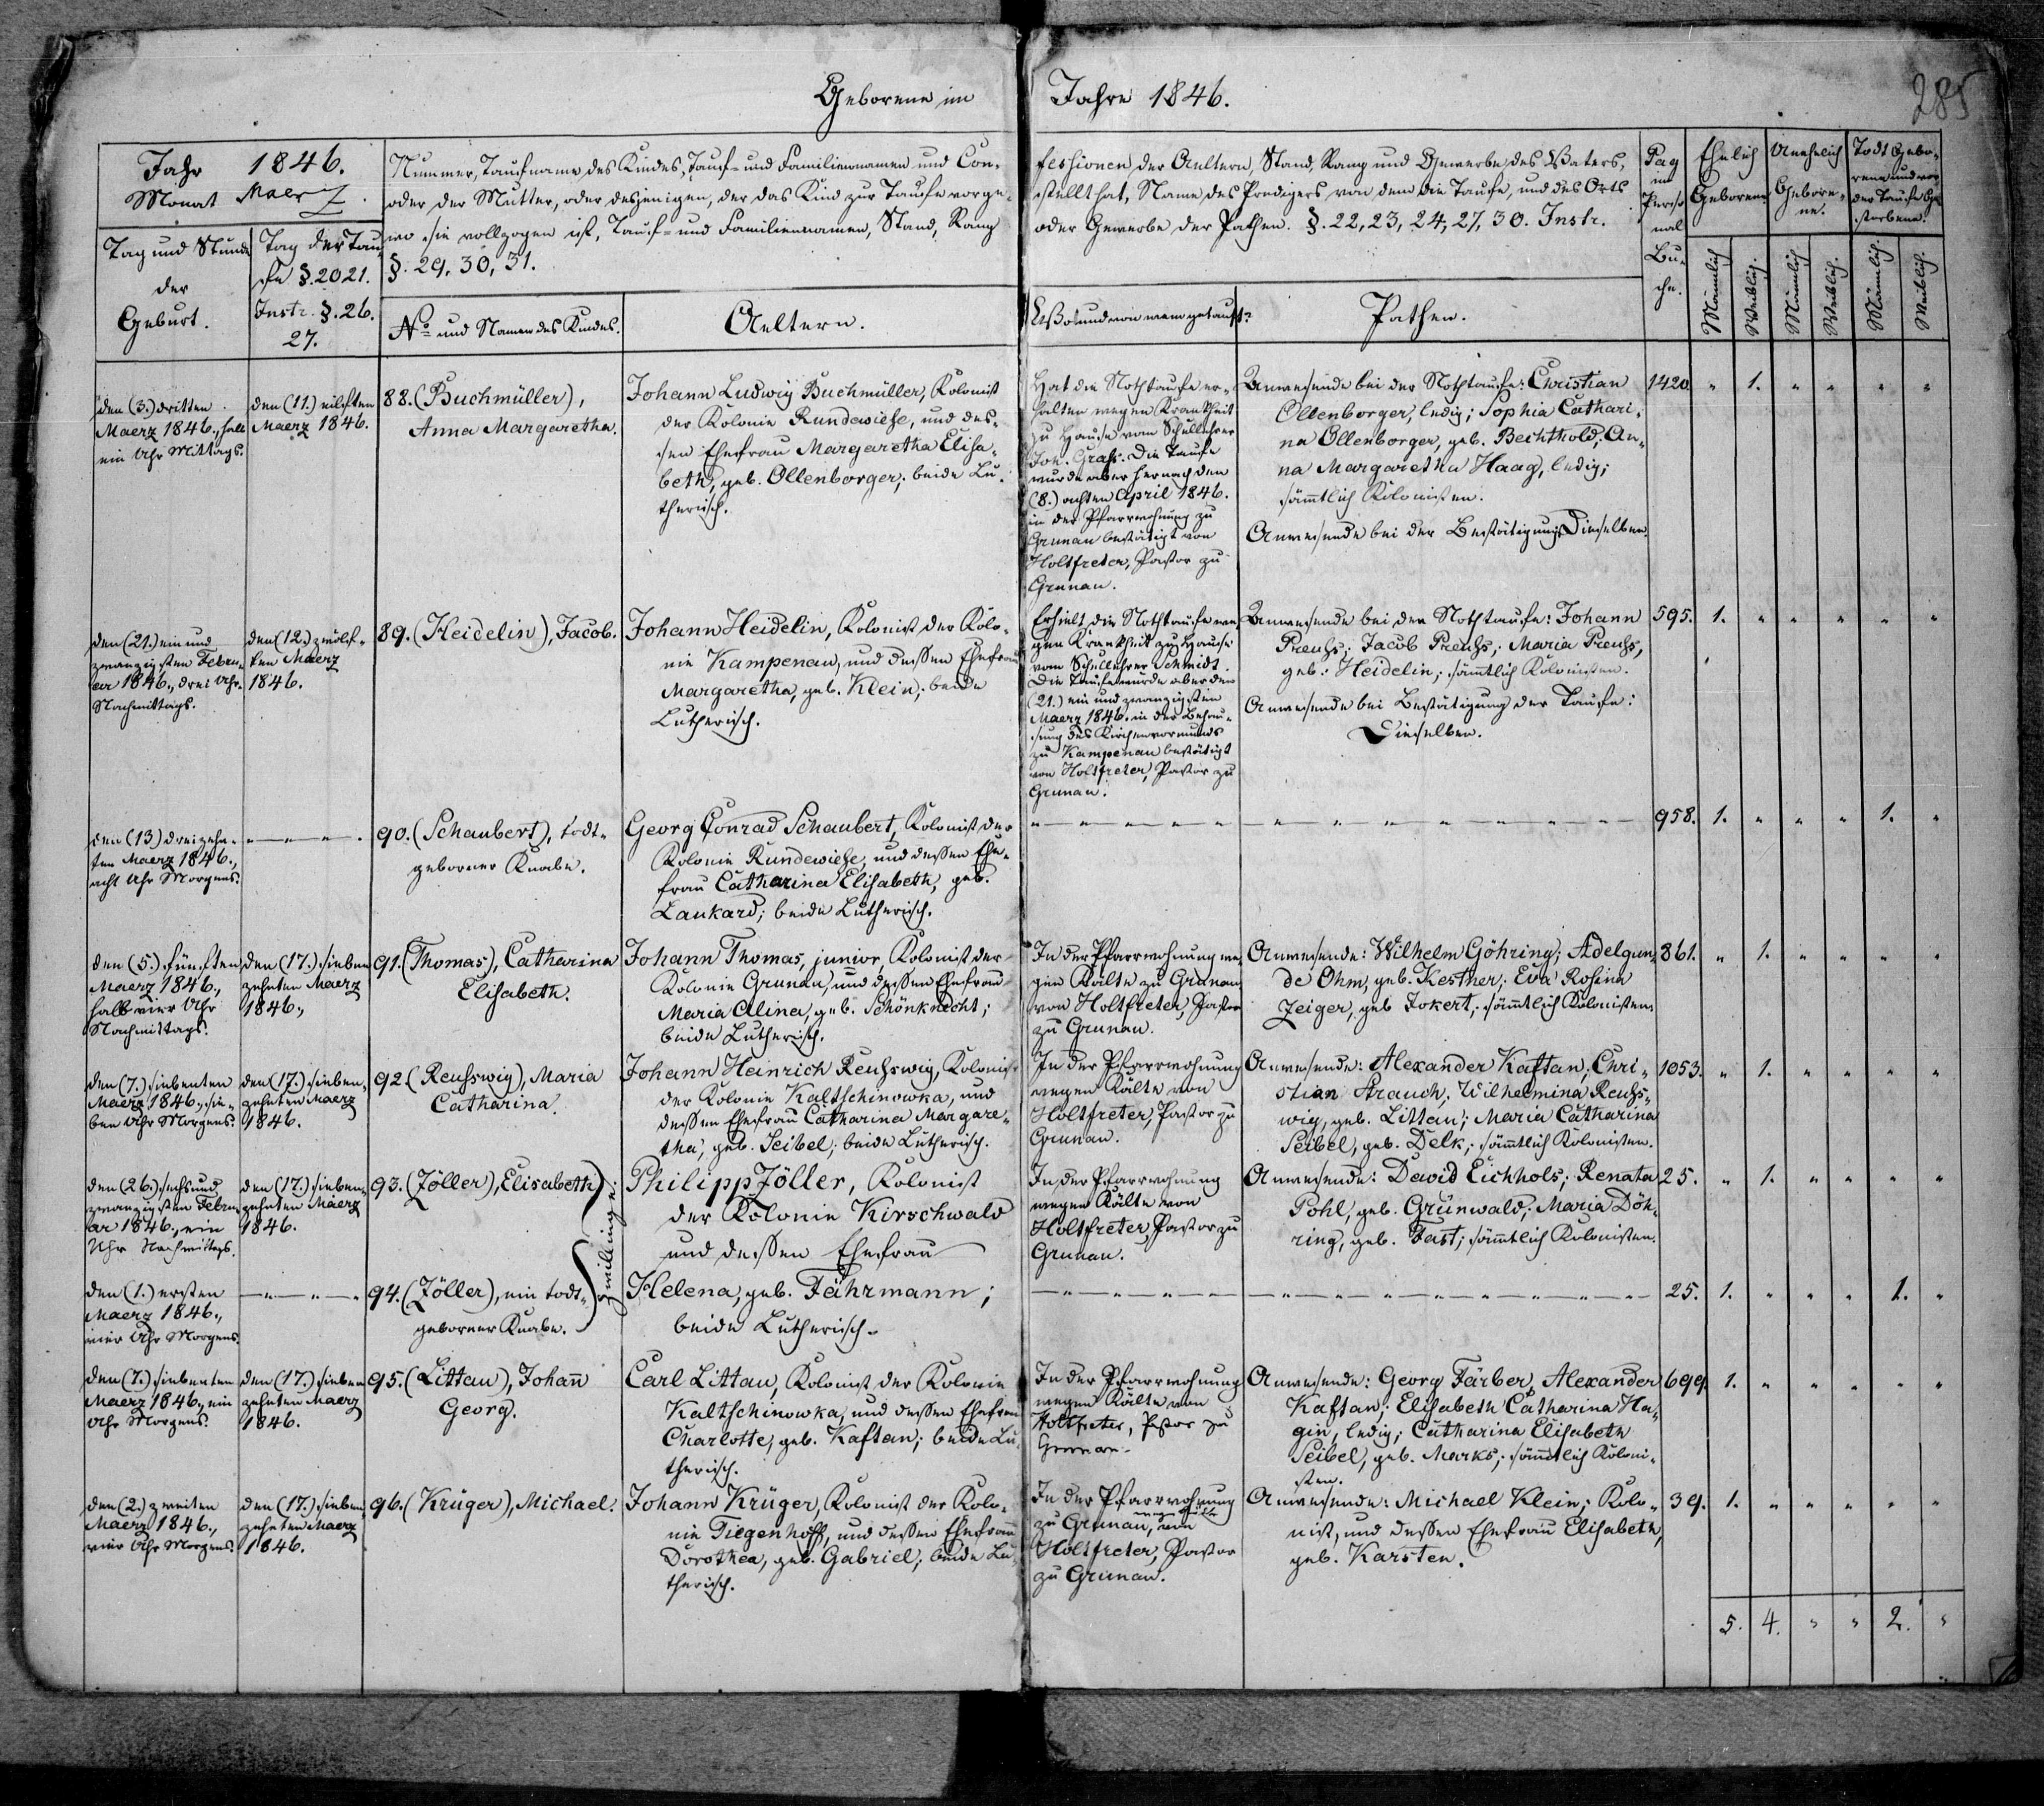 Geborene im Jahre 1846.
285
Jahr 1846.
Monat Maerz.
Nummer, Taufname des Kindes, Tauf- und Familiennamen und Con-
fessionen der Aeltern, Stand, Rang und Gewerbe des Vaters,
oder der Mutter, oder desjenigen, der das Kind zur Taufe vorge-
stellt hat, Name des Predigers von dem die Taufe, und des Orts
wo sie vollzogen ist, Tauf- und Familiennamen, Stand, Rang
oder Gewerbe der Pathen. §. 22, 23, 24, 27, 30. Instr.
§. 29, 30, 31.
Tag und Stunde
der
Geburt.
Tag der Tau-
fe §. 20 21.
Instr. §. 26.
27.
No und Namen des Kindes.
Aeltern.
Wo und von wem getauft?
Pathen.
Pag
im
Perso
nal
Bu-
che.
Ehelich
Geborene
Unehelich
Gebore-
ne.
Todt Gebo-
rene und vor
der Taufe Ge-
storbene.
Männlich
Weiblich.
Männlich
Weiblich.
Männlich.
Weiblich.
den (3.) dritten
Maerz 1846., halb
ein Uhr Mittags.
den (11.) eilften
Maerz 1846.
88. (Buchmüller),
Anna Margaretha.
Johann Ludwig Buchmüller, Kolonist
der Kolonie Rundewiese, und des-
sen Ehefrau Margaretha Elisa-
beth, geb. Ollenborger; beide Lu-
therisch.
Hat die Nothtaufe er-
halten wegen Krankheit
zu Hause vom Schullehrer
Joh. Graf. Die Taufe
wurde aber hernach den
(8.) achten April 1846.
in der Pfarrwohnung zu
Grunau bestätigt von
Holtfreter, Pastor zu
Grunau.
Anwesende bei der Nothtaufe: Christian
Ollenborger, ledig; Sophia Cathari-
na Ollenborger, geb. Bechthold; An-
na Margaretha Haag, ledig;
sämtlich Kolonisten.
Anwesende bei der Bestätigung: Dieselben.
1420. " 1. " " " "
den (21.) ein und
zwanzigsten Febru-
ar 1846., drei Uhr
Nachmittags.
den (12.) zwölf-
ten Maerz
1846.
89. (Heidelin), Jacob.
Johann Heidelin, Kolonist der Kolo-
nie Kampenau, und dessen Ehefrau
Margaretha, geb. Klein; beide
Lutherisch.
Erhielt die Nothtaufe we-
gen Krankheit zu Hause
vom Schullehrer Schmidt.
Die Taufe wurde aber den
(21.) ein und zwanzigsten
Maerz 1846. in der Behau-
sung des Kirchenvormunds
zu Kampenau bestätigt
von Holtfreter, Pastor zu
Grunau.
Anwesende bei der Nothtaufe: Johann
Preuss; Jacob Preuss; Maria Preuss,
geb. Heidelin; sämtlich Kolonisten.
Anwesende bei Bestätigung der Taufe:
Dieselben.
595. 1. " " " " "
den (13) dreizehn-
ten Maerz 1846.,
acht Uhr Morgens.
90. (Schaubert), todt-
geborner Knabe.
Georg Conrad Schaubert, Kolonist der
Kolonie Rundewiese, und dessen Ehe-
frau Catharina Elisabeth, geb.
Laukard; beide Lutherisch.
958. 1. " " " 1. "
den (5.) fünften
Maerz 1846.,
halb vier Uhr
Nachmittags.
den (17.) sieben
zehnten Maerz
1846.,
91. (Thomas), Catharina
Elisabeth.
Johann Thomas, junior, Kolonist der
Kolonie Grunau, und dessen Ehefrau
Maria Alina, geb. Schönknecht;
beide Lutherisch.
In der Pfarrwohnung we-
gen Kälte zu Grunau
von Holtfreter, Pastor
zu Grunau.
Anwesende: Wilhelm Göhring; Adelgun-
de Ohm, geb. Kestner; Eva Rosina
Zeiger, geb Jokert; sämtlich Kolonisten.
861. " 1. " " " "
den (7.) siebenten
Maerz 1846., sie-
ben Uhr Morgens.
den (17.) sieben-
zehnten Maerz
1846.
92. (Reusswig), Maria
Catharina.
Johann Heinrich Reusswig, Kolonist
der Kolonie Kaltschinowka, und
dessen Ehefrau Catharina Margare-
tha, geb. Seibel; beide Lutherisch.
In der Pfarrwohnung
wegen Kälte von
Holtfreter, Pastor zu
Grunau.
Anwesende: Alexander Kaftan; Chri-
stian Strauch; Wilhelmina Reuss-
wig, geb. Littau; Maria Catharina
Seibel, geb. Delk; sämtlich Kolonisten.
1053. " 1. " " " "
den (26.) sechsund
zwanzigsten Febru-
ar 1846., ein
Uhr Nachmittags.
den (17.) sieben-
zehnten Maerz
1846.
93. (Zöller), Elisabeth
Zwillinge.
Philipp Zöller, Kolonist
der Kolonie Kirschwald
und dessen Ehefrau
In der Pfarrwohnung
wegen Kälte von
Holtfreter, Pastor zu
Grunau.
Anwesende: David Eichhols; Renata
Pohl, geb. Grünwald; Maria Döh-
ring, geb. Fast; sämtlich Kolonisten.
25. " 1. " " " "
den (1.) ersten
Maerz 1846.,
vier Uhr Morgens.
94. (Zöller), ein todt-
geborner Knabe.
Helena, geb. Fährmann;
beide Lutherisch.
25. 1. " " " 1. "
den (7.) siebenten
Maerz 1846., ein
Uhr Morgens.
den (17.) sieben
zehnten Maerz
1846.
95. (Littau), Johann
Georg.
Carl Littau, Kolonist der Kolonie
Kaltschinowka, und dessen Ehefrau
Charlotte, geb. Kaftan; beide Lu-
therisch.
In der Pfarrwohnung
wegen Kälte von
Holtfreter, Pastor zu
Grunau.
Anwesende: Georg Färber, Alexander
Kaftan; Elisabeth Catharina Ha-
gin, ledig; Catharina Elisabeth
Seibel, geb. Marks; sämtlich Koloni-
sten.
699. 1. " " " " "
den (2.) zweiten
Maerz 1846.,
vier Uhr Morgens.
den (17.) sieben
zehnten Maerz
1846.
96. (Krüger), Michael.
Johann Krüger, Kolonist der Kolo-
nie Tiegenhoff, und dessen Ehefrau
Dorothea, geb. Gabriel; beide Lu-
therisch.
In der Pfarrwohnung
wegen Kälte
zu Grunau, von
Holtfreter, Pastor
zu Grunau.
Anwesende: Michael Klein; Kolo-
nist, und dessen Ehefrau Elisabeth,
geb. Karsten.
39. 1. " " " " "
5. 4. " " 2. "